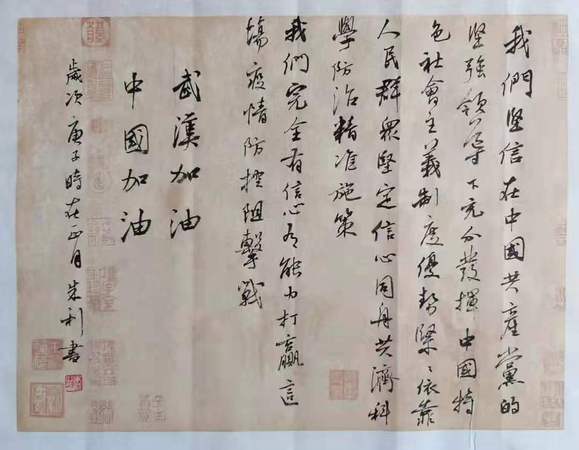 我們堅信在中國共產黨的
坚強領導下充分發揮中國特
色社會主義制度優勢緊緊依靠
人民群眾堅定信心同舟共濟科
學防治精准施策
我們完全有信心有能力打贏這
場疫情防控阻擊戰
武漢加油
中國加油
歲次庚子時在正月朱利書